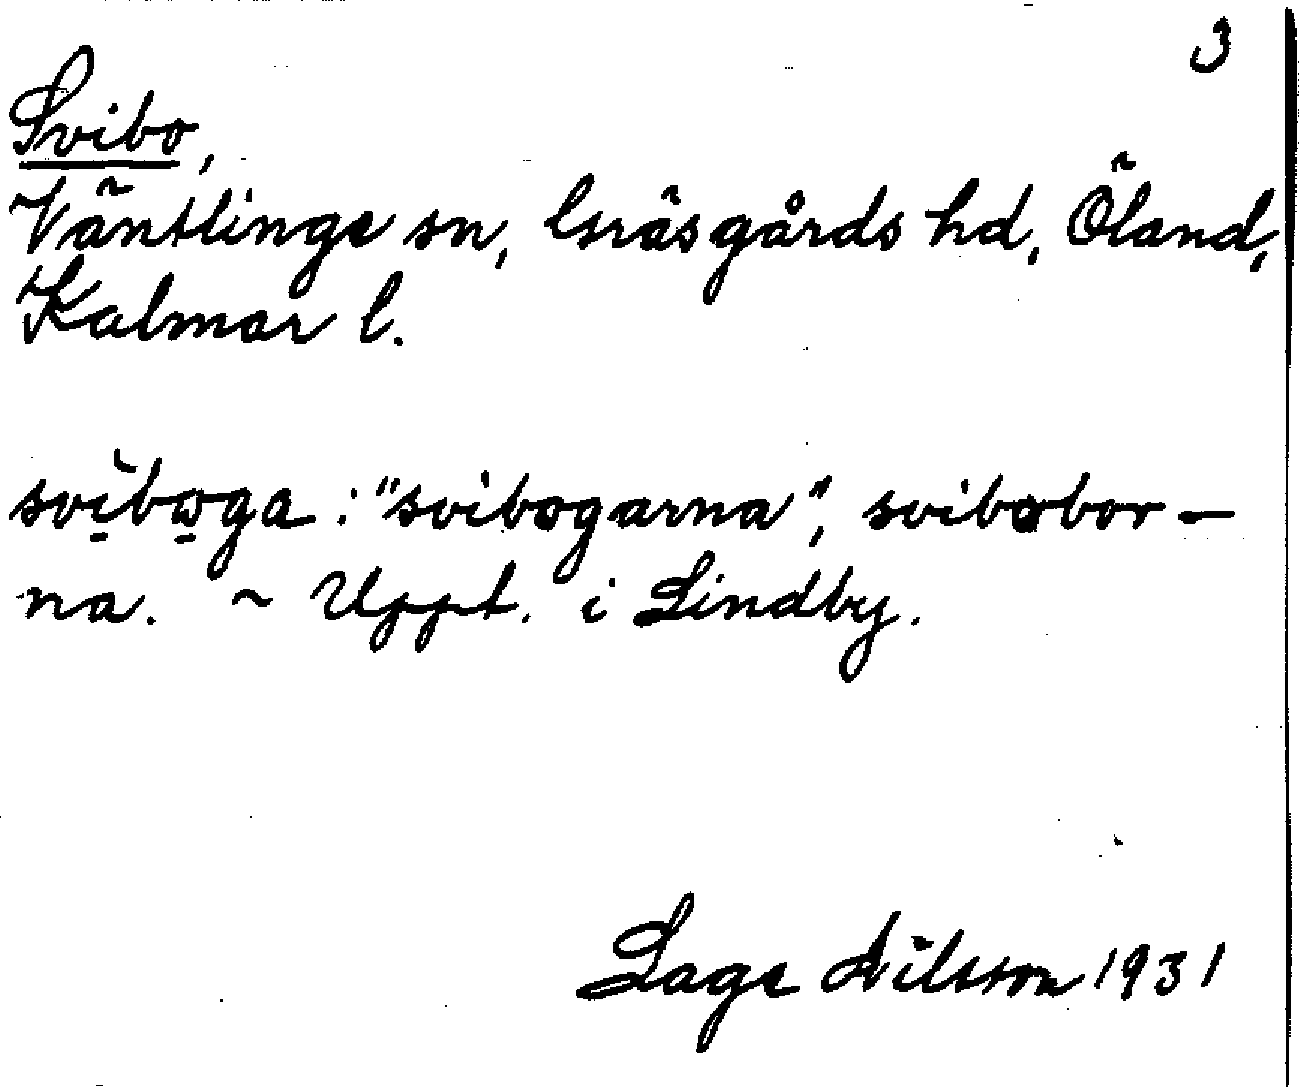 3
Svibo,
Väntlinge sn, Gräsgårds hd, Öland,
Kalmar l.
svìḇo̱ga : "svibogarna", svibobor-
na. ~ Uppt. i Lindby.
Lage Nilsson 1931